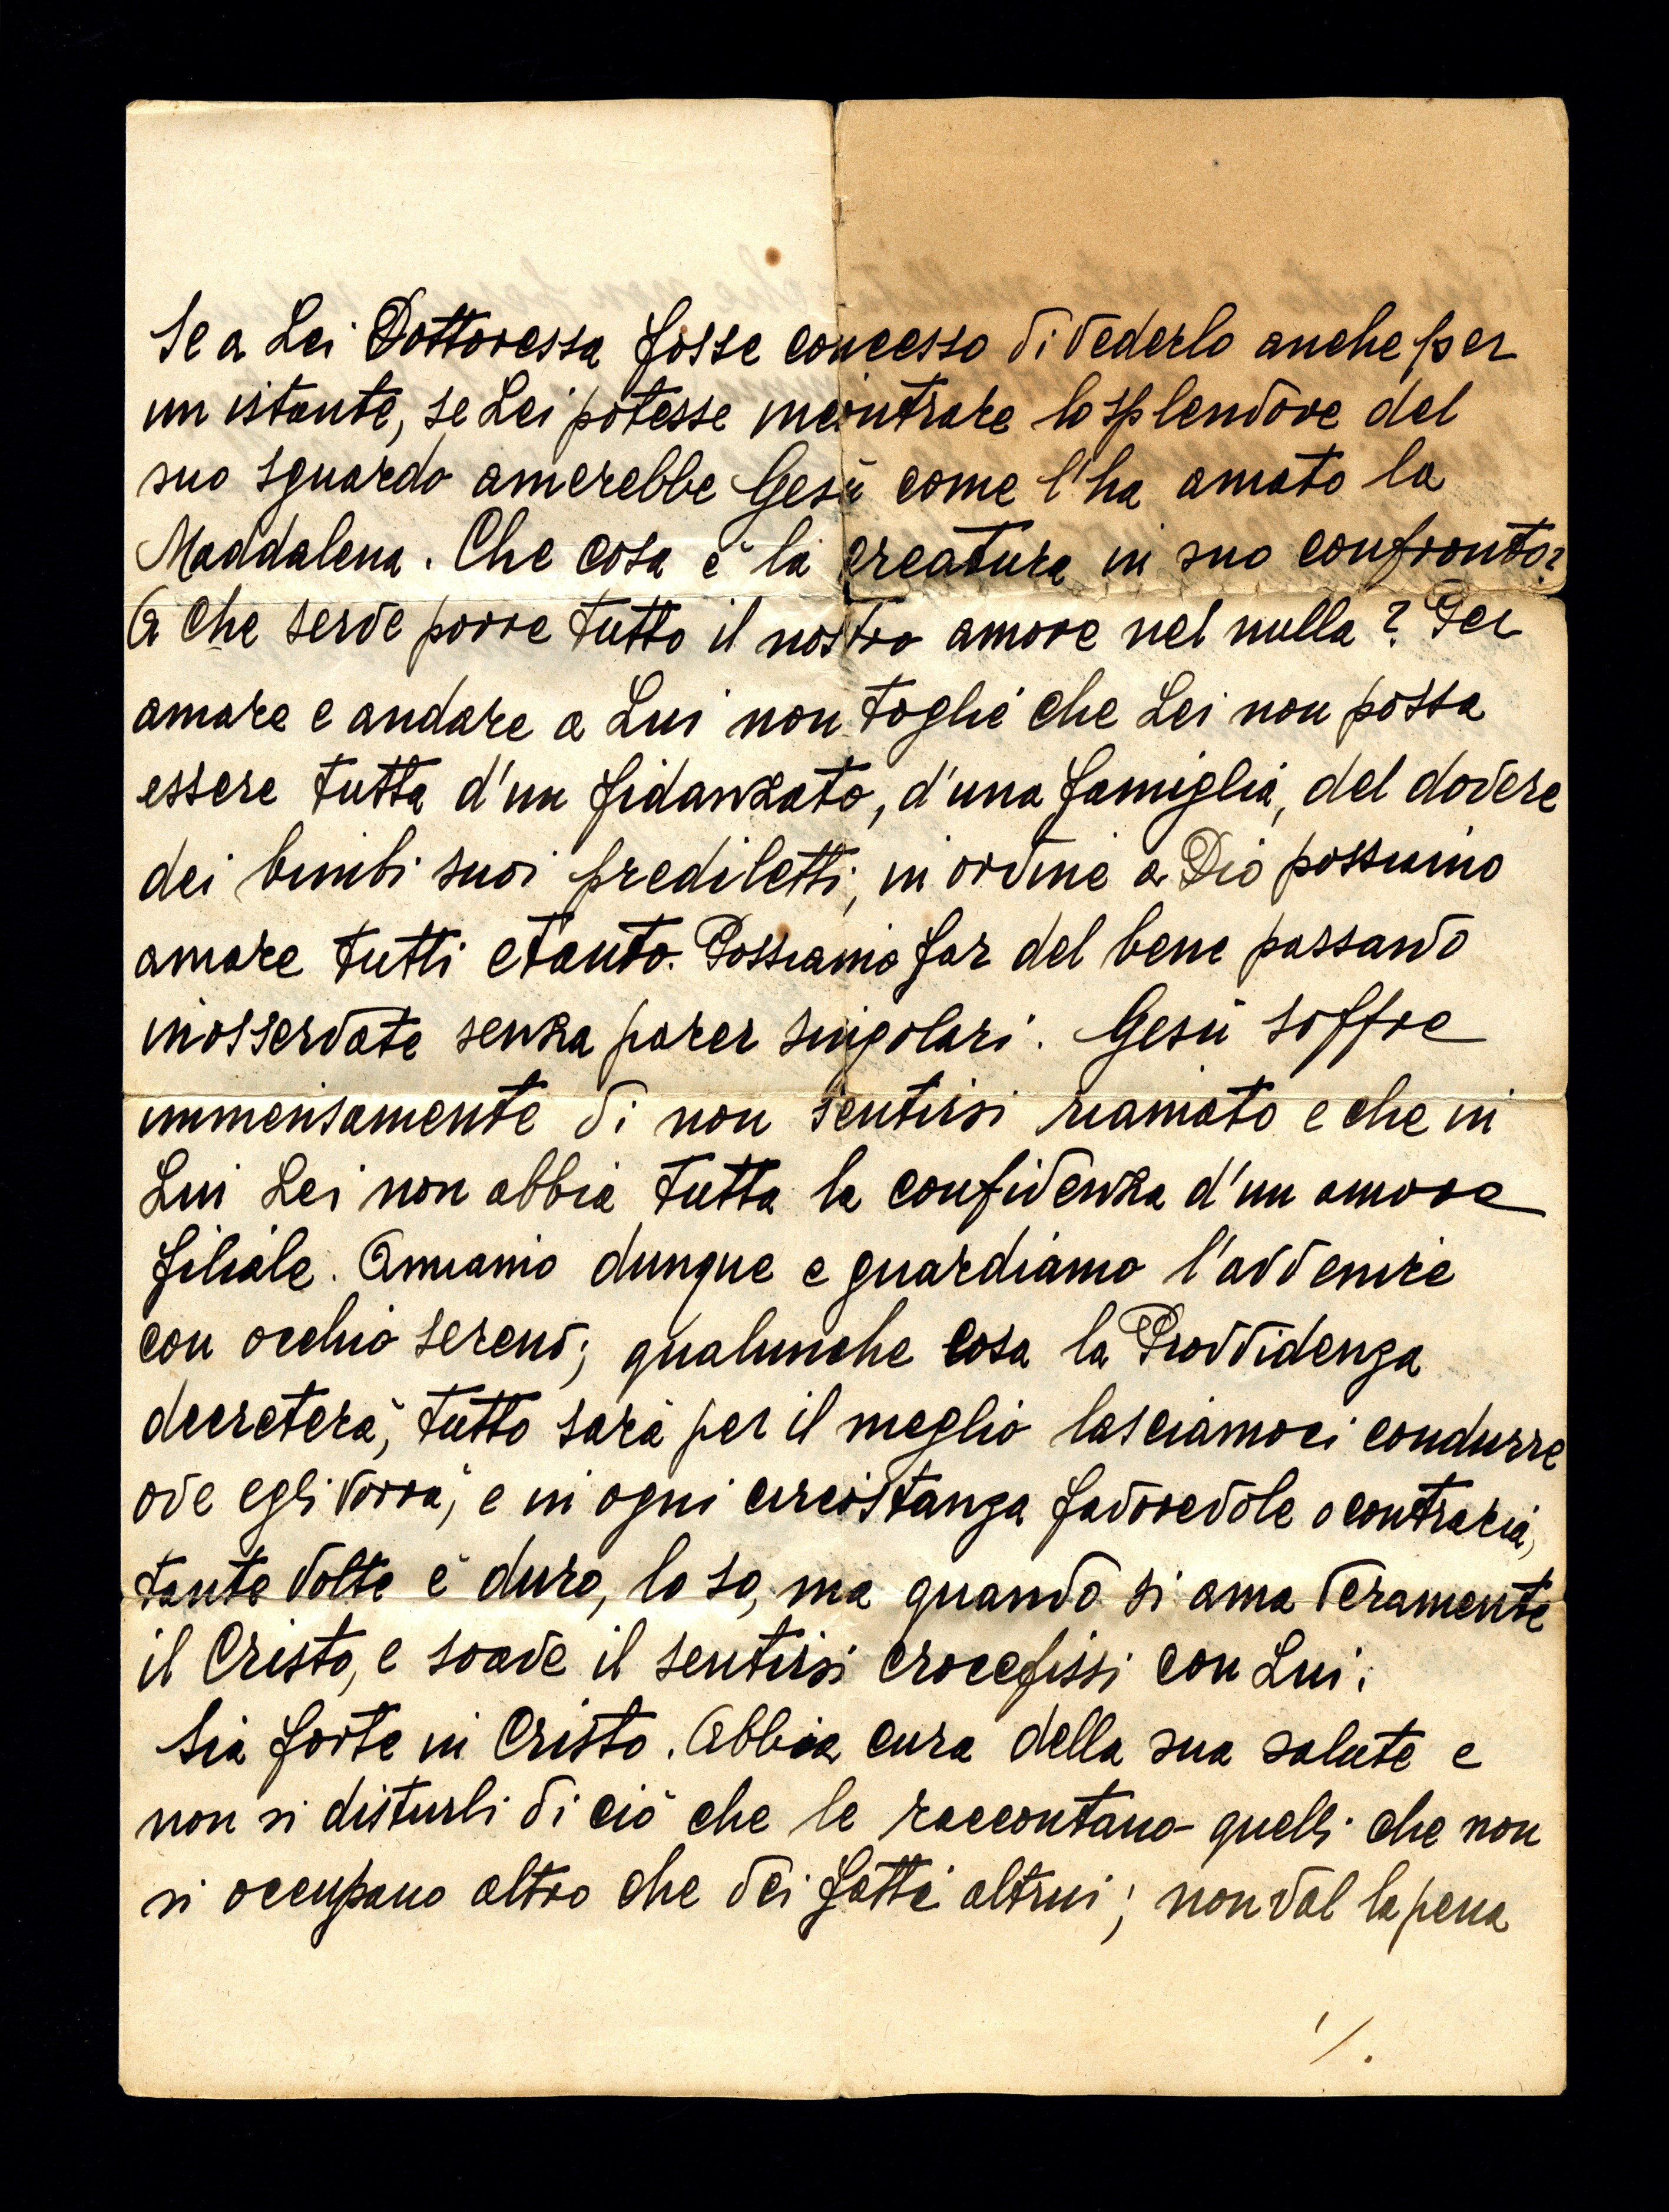 Se a Lei Dottoressa fosse concesso di vederlo anche per
un istante, se Lei potesse incontrare lo splendore del
suo sguardo amerebbe Gesù come l'ha amato la
Maddalena. Che cosa è la creatura in suo confronto?
A che serve porre tutto il nostro amore nel nulla? Per
amare e andare a Lui non toglie che Lei non possa
essere tutta d'un fidanzato, d'una famiglia, del dovere
dei bimbi suoi prediletti, in ordine a Dio possiamo
amare tutti e tanto. Possiamo far del bene passando
inosservate senza parer singolari. Gesù soffre
immensamente di non sentirsi riamato e che in
Lui Lei non abbia tutta la confidenza d'un amore
filiale. Amiamo dunque e guardiamo l'avvenire
con occhio sereno; qualunche cosa la Provvidenza
decreterà, tutto sarà per il meglio lasciamoci condurre
ove egli vorrà, e in ogni circostanza favorevole o contraria,
tante volte è duro, lo so, ma quando si ama veramente
il Cristo, e soave il sentirsi crocefissi con Lui.
Sia forte in Cristo. Abbia cura della sua salute e
non si disturbi di ciò che le raccontano quelli che non
si occupano altro che dei fatti altrui; non val la pena
./.